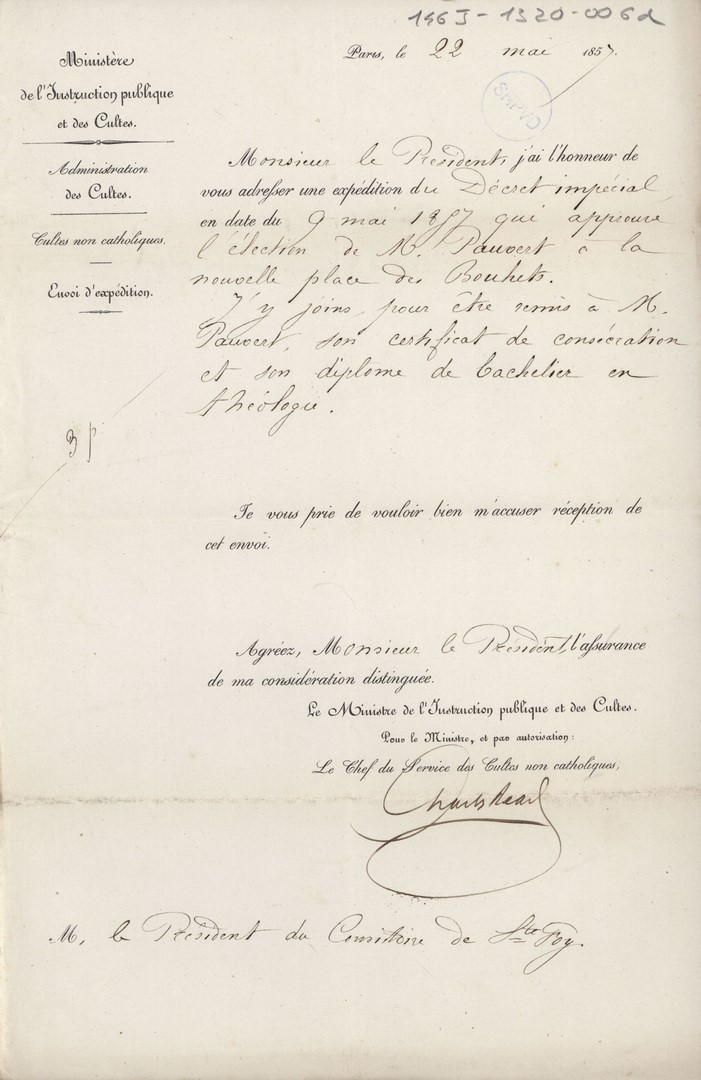 146J-1320-006d
Ministère
de l'Instruction publique
et des Cultes.
Administration
des Cultes.
Cultes non catholiques.
Envoi d'expédition.
3 p
Paris, le 22 mai 1857.
SHPVD
Monsieur le Président, j'ai l'honneur de
vous adresser une expédition du Décret impérial,
en date du 9 mai 1857 qui approuve
l'élection de M. Pauvert à la
nouvelle place des Bouhets.
J'y joins, pour être remis à M.
Pauvert, son certificat de consécration
et son diplome de bachelier en
théologie.
Je vous prie de vouloir bien m'accuser réception de
cet envoi.
Agréez, Monsieur le Président, l'assurance
de ma considération distinguée.
Le Ministre de l'Instruction publique et des Cultes.
Pour le Ministre, et par autorisation:
Le Chef du Service des Cultes non catholiques,
Charles Read
M. le Président du Consistoire de Ste Foy.